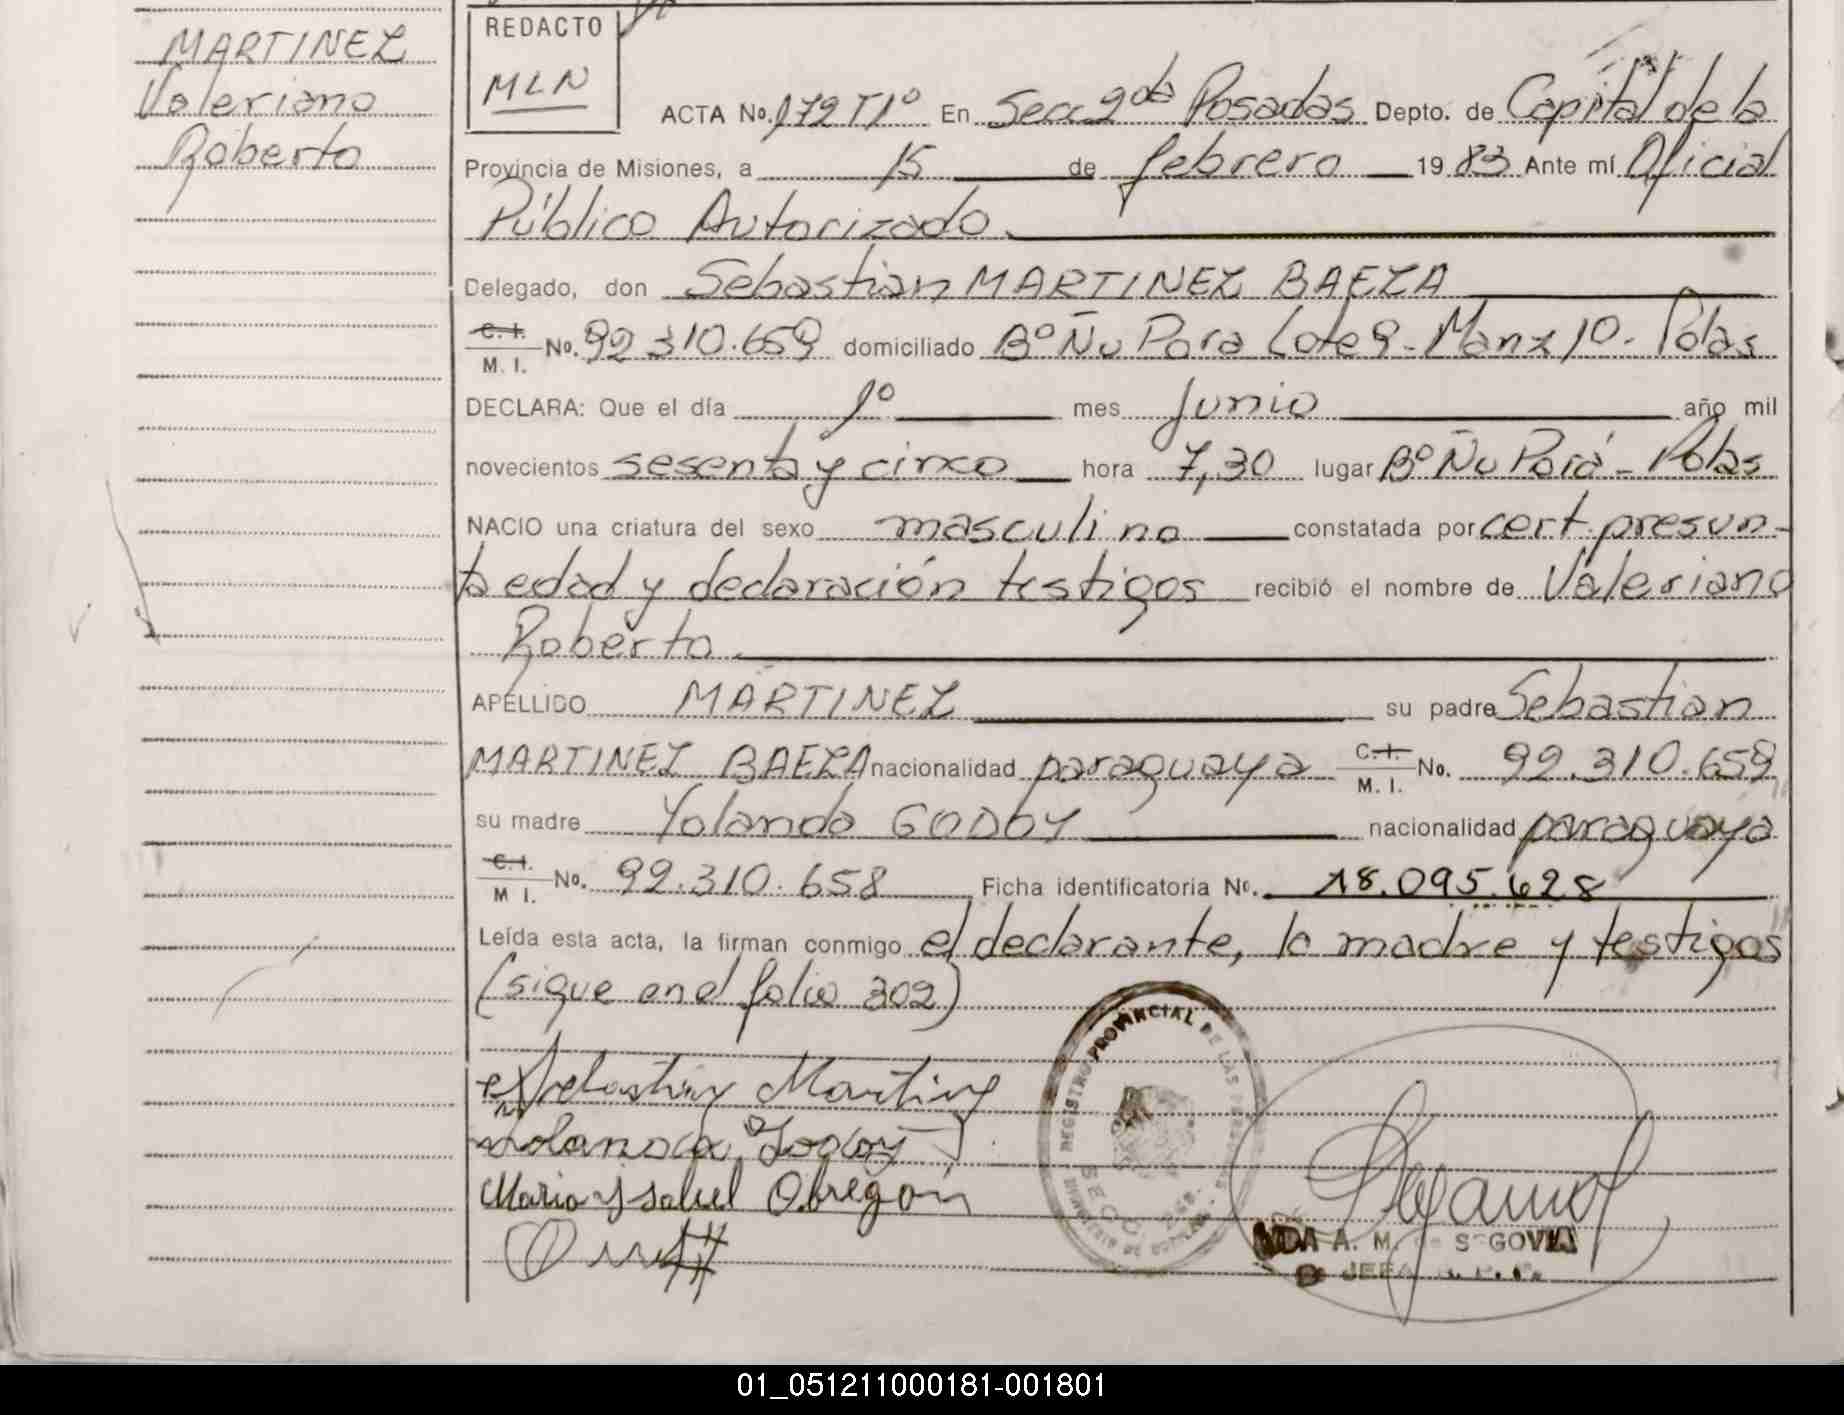 MARTINEZ
Valeriano
Roberto
REDACTO
MLN
ACTA No. 172 Tº1º En Secc 2da Posadas Depto. de Capital de la
Provincia de Misiones, a 15 de febrero 1983 Ante mí Oficial
Público Autorizado.
Delegado, don Sebastian MARTINEZ BAEZA
C. I. / M. I. No. 92 310.659 domiciliado Bº Ñu Pora Lote 9 - Manz 10. Pdas
DECLARA: Que el día 1º mes Junio año mil
novecientos sesenta y cinco hora 7,30 lugar Bº Ñu Porá - Pdas
NACIO una criatura del sexo masculino constatada por cert. presun-
ta edad y declaración testigos recibió el nombre de Valeriano
Roberto.
APELLIDO MARTINEZ su padre Sebastian
MARTINEZ BAEZA nacionalidad paraguaya C. I. / M. I. No. 92.310.659
su madre Yolanda GODOY nacionalidad paraguaya
C. I. / M. I. No. 92.310.658 Ficha identificatoria No. 18.095.628
Leída esta acta, la firman conmigo el declarante, la madre y testigos
(sigue en el folio 302)
Sebastian Martinez
Yolanda Godoy
Maria Ysabel Obregon
REGISTRO PROVINCIAL DE LAS PERSONAS
SECC.
A. M. de SEGOVIA
JEFA R. P.
01_051211000181-001801